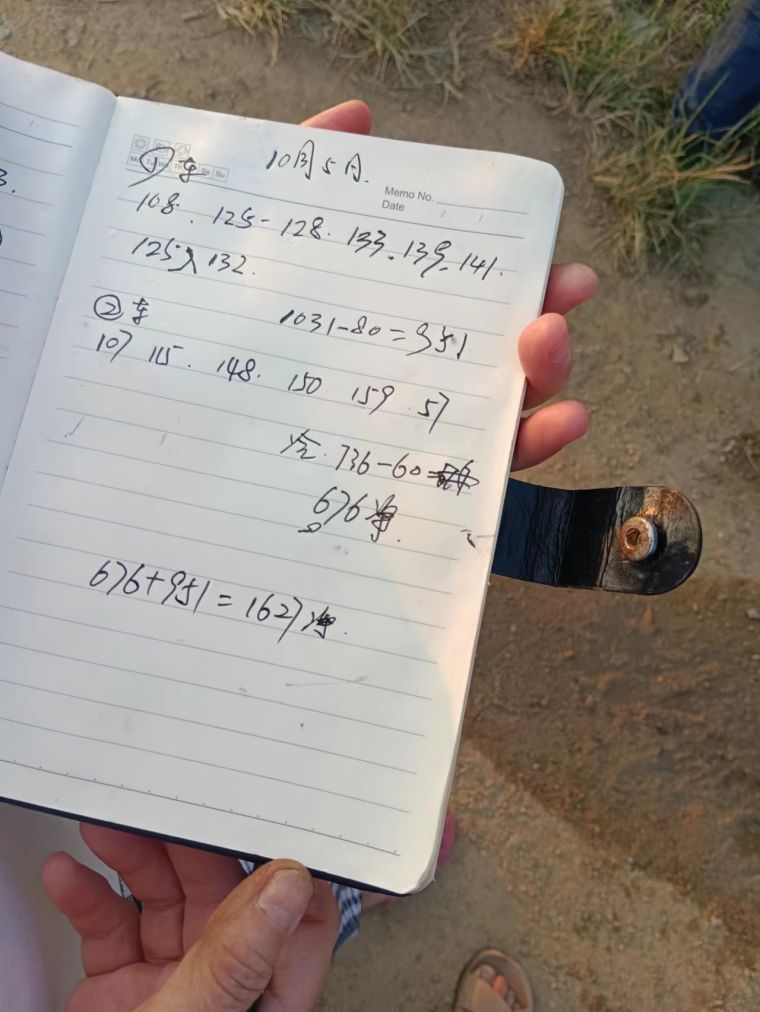 ①车 10月5日.
Memo No.
Mo Tu We Th Sa Su
Date / /
108. 125- 128. 133. 139. 141.
125 132.
②车 1031-80=951
107 115. 148. 150 159. 57
736-60=
676净.
676+951=1627净.